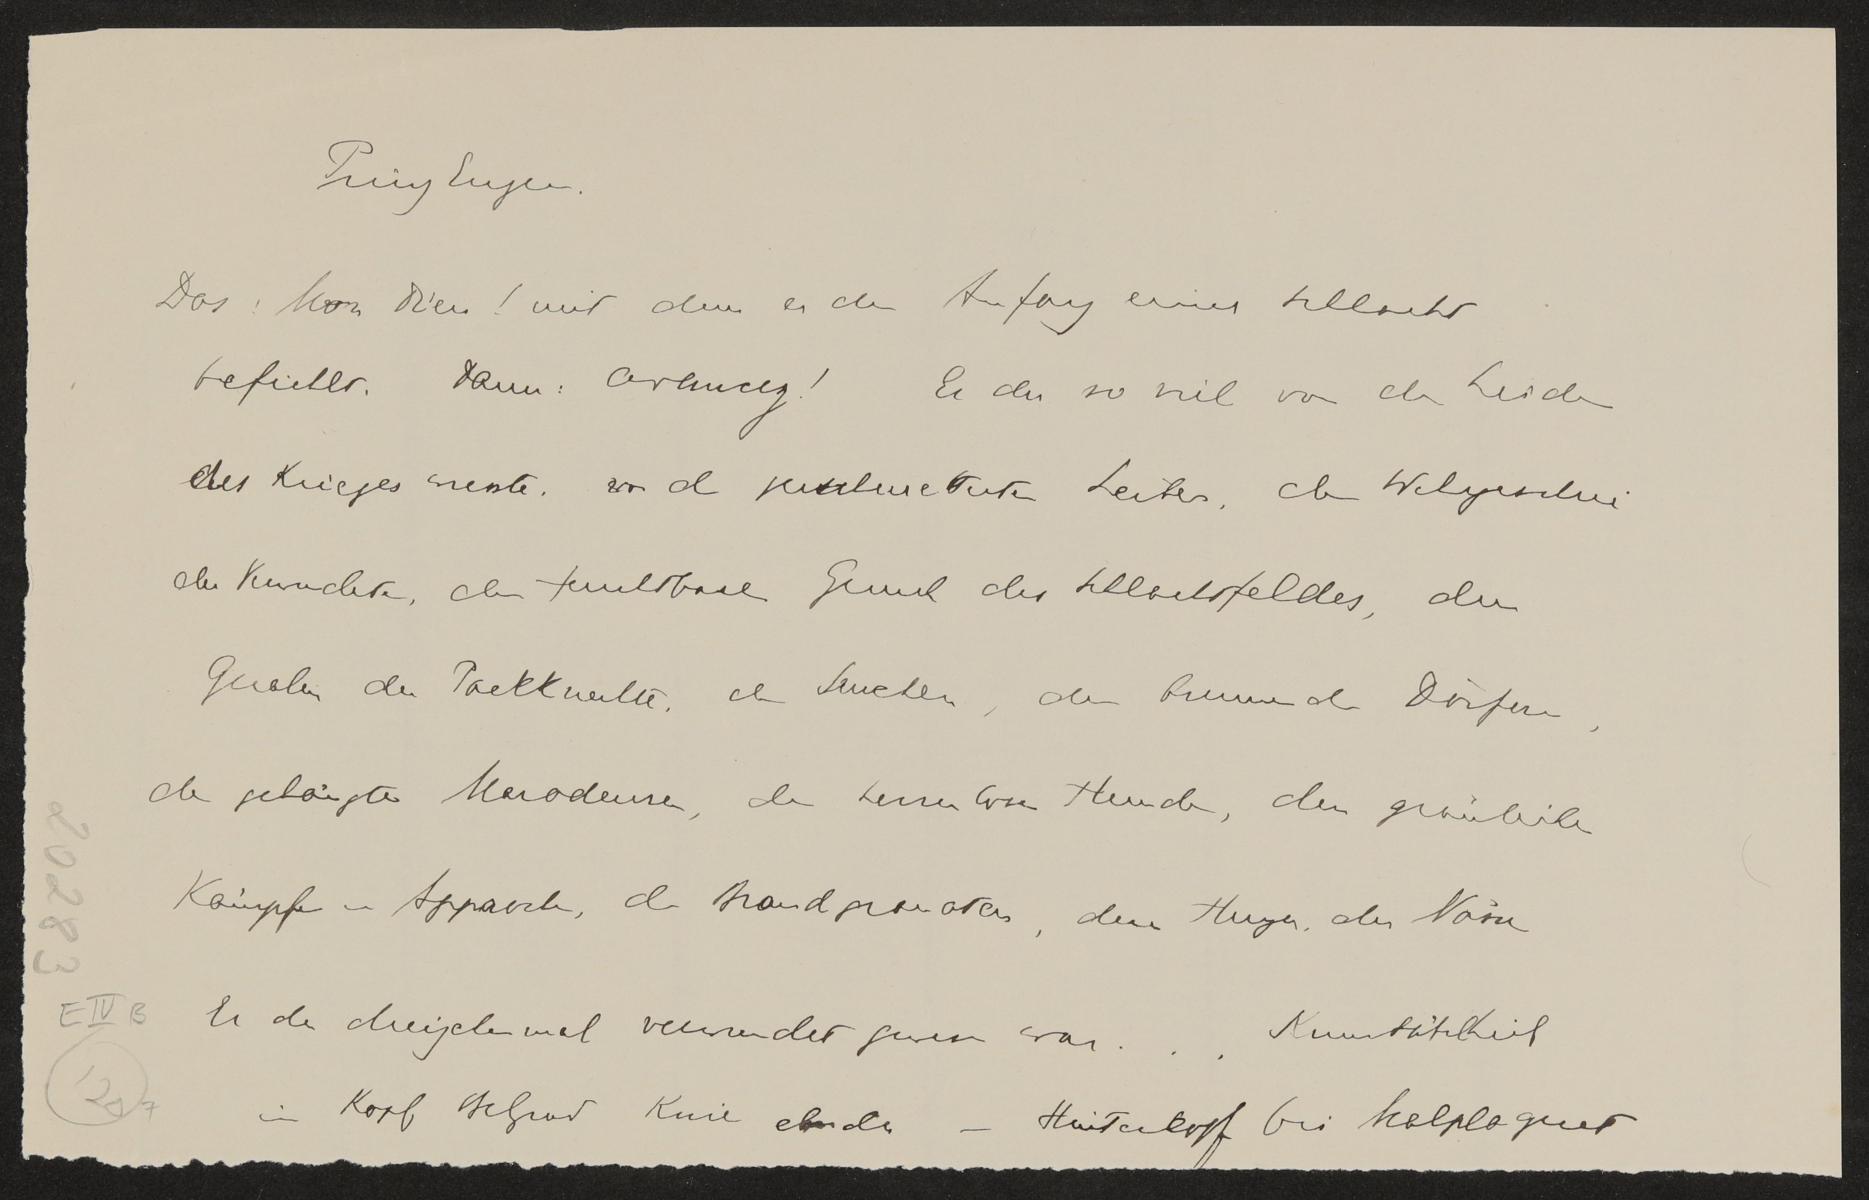 Prinz Eugen.
Das: Mon Dieu! mit dem er den Anfang einer Schlacht
befiehlt. Dann: avancez! Er der so viel von den Leiden
des Krieges wusste, von den zerschmetterten Leibern, dem Wehgeschrei
der Verwundeten, dem furchtbaren Geruch des Schlachtfeldes, den
Qualen der Packknechte, den Seuchen, den brennenden Dörfern,
den gehängten Marodeuren, den herrenlosen Hunden, den gräulichen
Kämpfen in Approchen, den Handgranaten, dem Hunger, der Nässe
Er der dreizehnmal verwundet gewesen war . . .
in Kopf Belgrad Knie – Hinterkopf bei Malplaquet
20283
E IV B